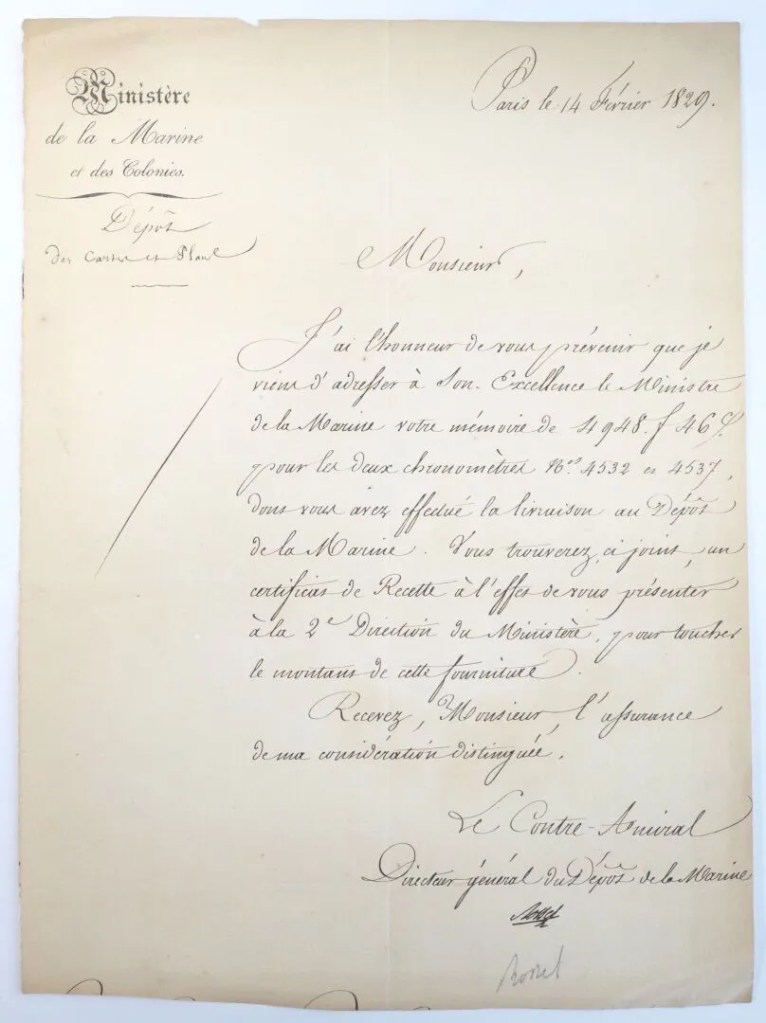 Ministère
de la Marine
et des Colonies.
Dépôt
des Cartes et Plans
Paris le 14 Février 1829.
Monsieur,
J'ai l'honneur de vous prévenir que je
viens d'adresser à Son Excellence le Ministre
de la Marine votre mémoire de 4948.f 46
pour les deux chronomètres Nos. 4532 et 4537,
dont vous avez effectué la livraison au Dépôt
de la Marine. Vous trouverez, ci joint, un
certificat de Recette à l'effet de vous présenter
à la 2e Direction du Ministère, pour toucher
le montant de cette fourniture.
Recevez, Monsieur, l'assurance
de ma considération distinguée.
Le Contre-Amiral
Directeur général du Dépôt de la Marine
Rossel